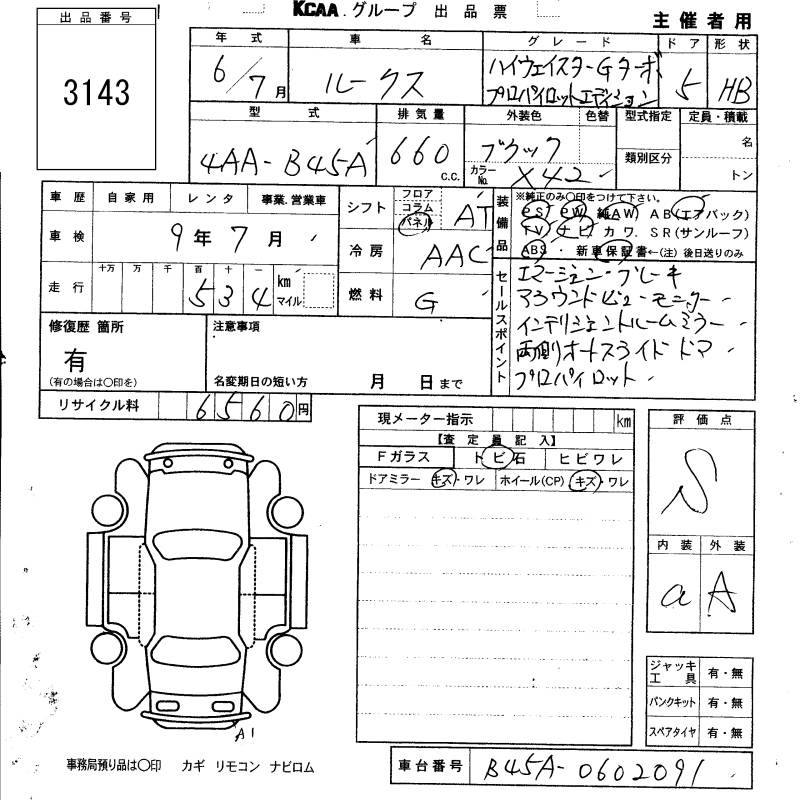 KCAA.グループ 出品票
主催者用
出品番号
3143
年式 車名 グレード ドア 形状
6/7月 ルークス ハイウェイスターGターボ プロパイロットエディション 5 HB
型式 排気量 外装色 色替 型式指定 定員・積載
4AA-B45A 660 c.c. ブラック カラーNo. X42 類別区分 名
トン
車歴 自家用 レンタ 事業.営業車
車検 9年7月
走行 十万 万 千 百 十 一
534 km マイル
シフト フロア コラム パネル AT
冷房 AAC
燃料 G
装備品 ※純正のみ〇印をつけて下さい。
PS PW 純AW AB(エアバック)
TV ナビ カワ. SR(サンルーフ)
ABS・ 新車保証書←(注)後日送りのみ
セールスポイント
エマージェンシーブレーキ
アラウンドビューモニター
インテリジェントルームミラー
両側オートスライドドア
プロパイロット
修復歴 箇所
有
(有の場合は〇印を)
注意事項
名変期日の短い方 月 日まで
リサイクル料 6560円
現メーター指示 km
【査定員記入】
Fガラス トビ石 ヒビワレ
ドアミラー キズ・ワレ ホイール(CP) キズ・ワレ
評価点
S
内装 外装
a A
ジャッキ工具 有・無
パンクキット 有・無
スペアタイヤ 有・無
A1
事務局預り品は〇印 カギ リモコン ナビロム
車台番号 B45A-0602091